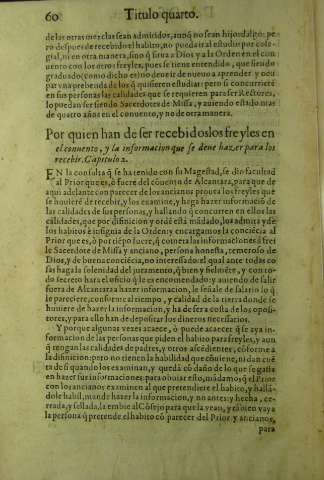 60 Titulo quarto.
de las otras mezclas sean admitidos, aunq̃ no sean hijosdalgo: pe
ro despues de recebido el habito, no pueda ir al estudio por cole-
gial, ni en otra manera, sino q̃ sirua a Dios y a la Orden en el con
uento con los otros freyles, pues se tiene entendido, que siendo
graduado (como dicho es) no deue ir de nueuo a aprender y ocu
par vna prebenda de los q̃ quisieren estudiar: pero si concurriere
en sus personas las calidades que se requieren para ser Retores,
lo puedan ser siendo Sacerdotes de Missa, y auiendo estado mas
de quatro años en el conuento, y no de otra manera.
Por quien han de ser recebidos los freyles en
el conuento, y la informacion que se deue hazer para los
recebir. Capitulo 2.
EN la consulta q̃ se ha tenido con su Magestad, se dio facultad
al Prior que es, ò fuere del cõuento de Alcantara, para que de
aqui adelante con parecer de los ancianos prouea los freyles que
se houieren de recebir, y los examine, y haga hazer informaciõ de
las calidades de sus personas, y hallando q̃ concurren en ellos las
calidades, que por difinicion y ordẽ està mãdado, los admita y dè
los habitos è insignia de la Orden: y encargamos la conciẽcia al
Prior que es, ò por tiẽpo fuere, q̃ cometa las informaciones à frei
le Sacerdote de Missa y anciano, persona honesta, temeroso de
Dios, y de buena conciẽcia, no interessado: el qual ante todas co
sas haga la solenidad del juramento, q̃ bien y fielmẽte, y con to-
do secreto harà el oficio q̃ le es encomendado: y auiendo de salir
fuera de Alcantara a hazer informacion, le señale de salario lo q̃
le pareciere, conforme al tiempo, y calidad de la tierra donde se
huuiere de hazer la informacion, y ha de ser a costa de los oposi-
tores, y para ello han de depositar los dineros necessarios.
Y porque algunas vezes acaece, ò puede acaecer q̃ se aya in-
formacion de las personas que piden el habito para freyles, y aun
q̃ tengan las calidades de padres, y otros ascẽdientes, cõforme a
la difinicion: pero no tienen la habilidad que cõuiene, ni dan cuẽ
ta de si quando los examinan, y quedà cõ daño de lo que se gasta
en hazer sus informaciones: para obuiar esto, mãdamos q̃ el Prior
con los ancianos examinen al que pretendiere el habito, y hallã-
dole habil, mande hazer la informacion, y no antes: y hecha, ce-
rrada, y sellada, la embie al Cõsejo para que la vean, y tãbien vaya
la persona q̃ pretende el habito cõ parecer del Prior y ancianos,
para